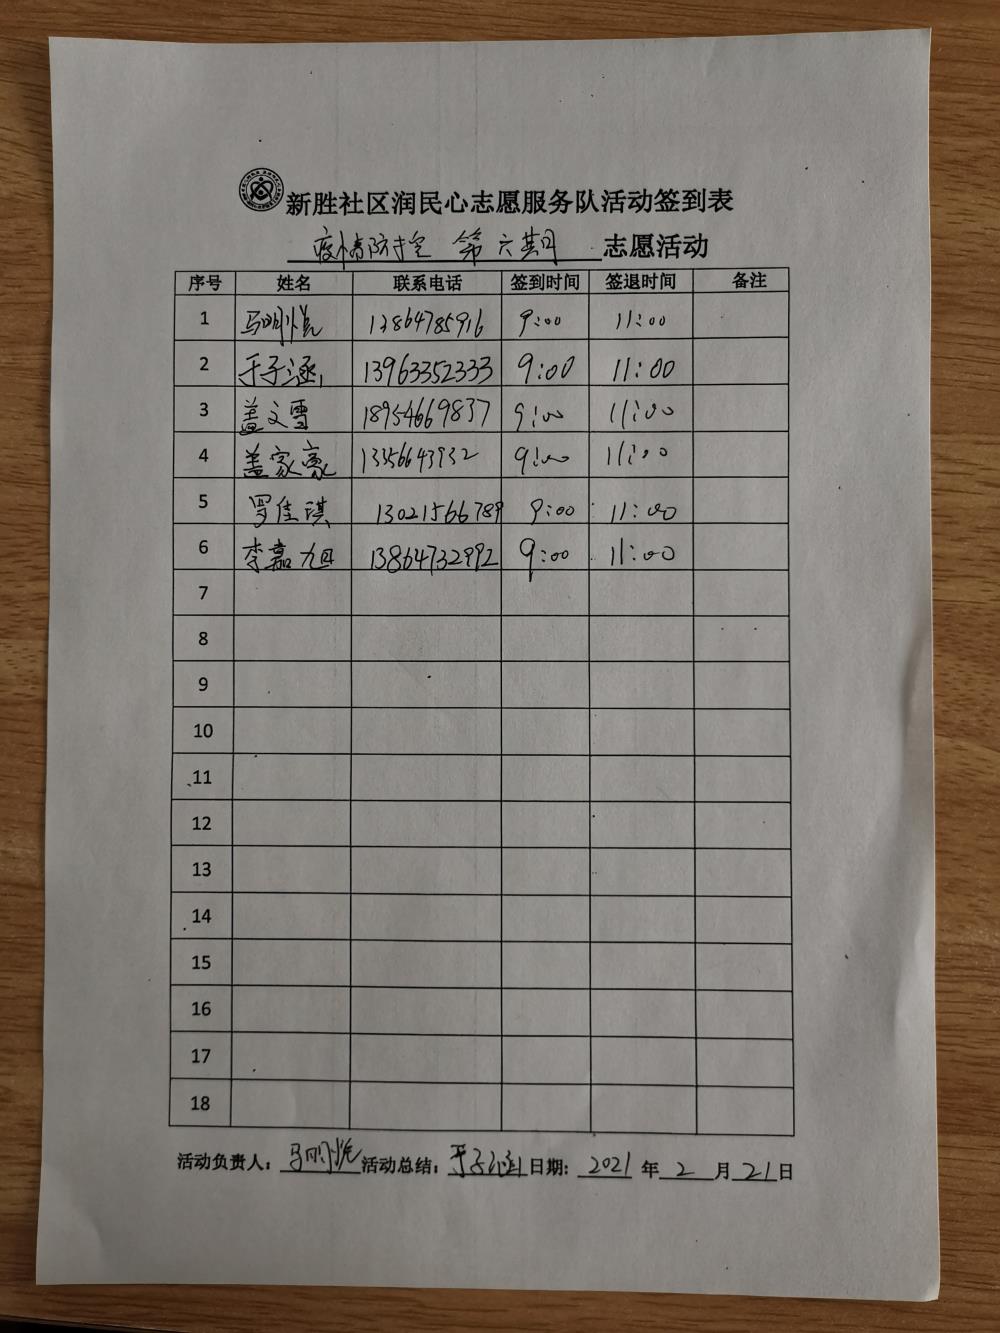 新胜社区润民心志愿服务队活动签到表
疫情防控 第六期 志愿活动
序号 姓名 联系电话 签到时间 签退时间 备注
1 马明悦 13864785916 9:00 11:00
2 于子涵 13963352333 9:00 11:00
3 盖文雪 18954669837 9:00 11:00
4 盖家豪 13356643932 9:00 11:00
5 罗佳琪 13021566789 9:00 11:00
6 李嘉旭 13864732992 9:00 11:00
7
8
9
10
11
12
13
14
15
16
17
18
活动负责人: 马明悦 活动总结: 于子涵 日期: 2021 年 2 月 21 日